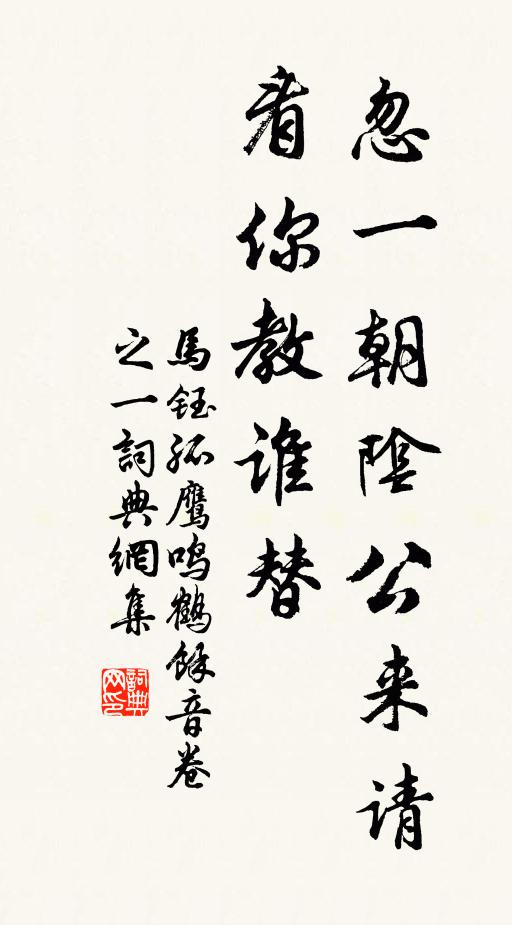 忽一朝陰公来请
看你教谁替
馬鈺孤鹰鸣鶴餘音卷
之一詞典網集
詞典网印